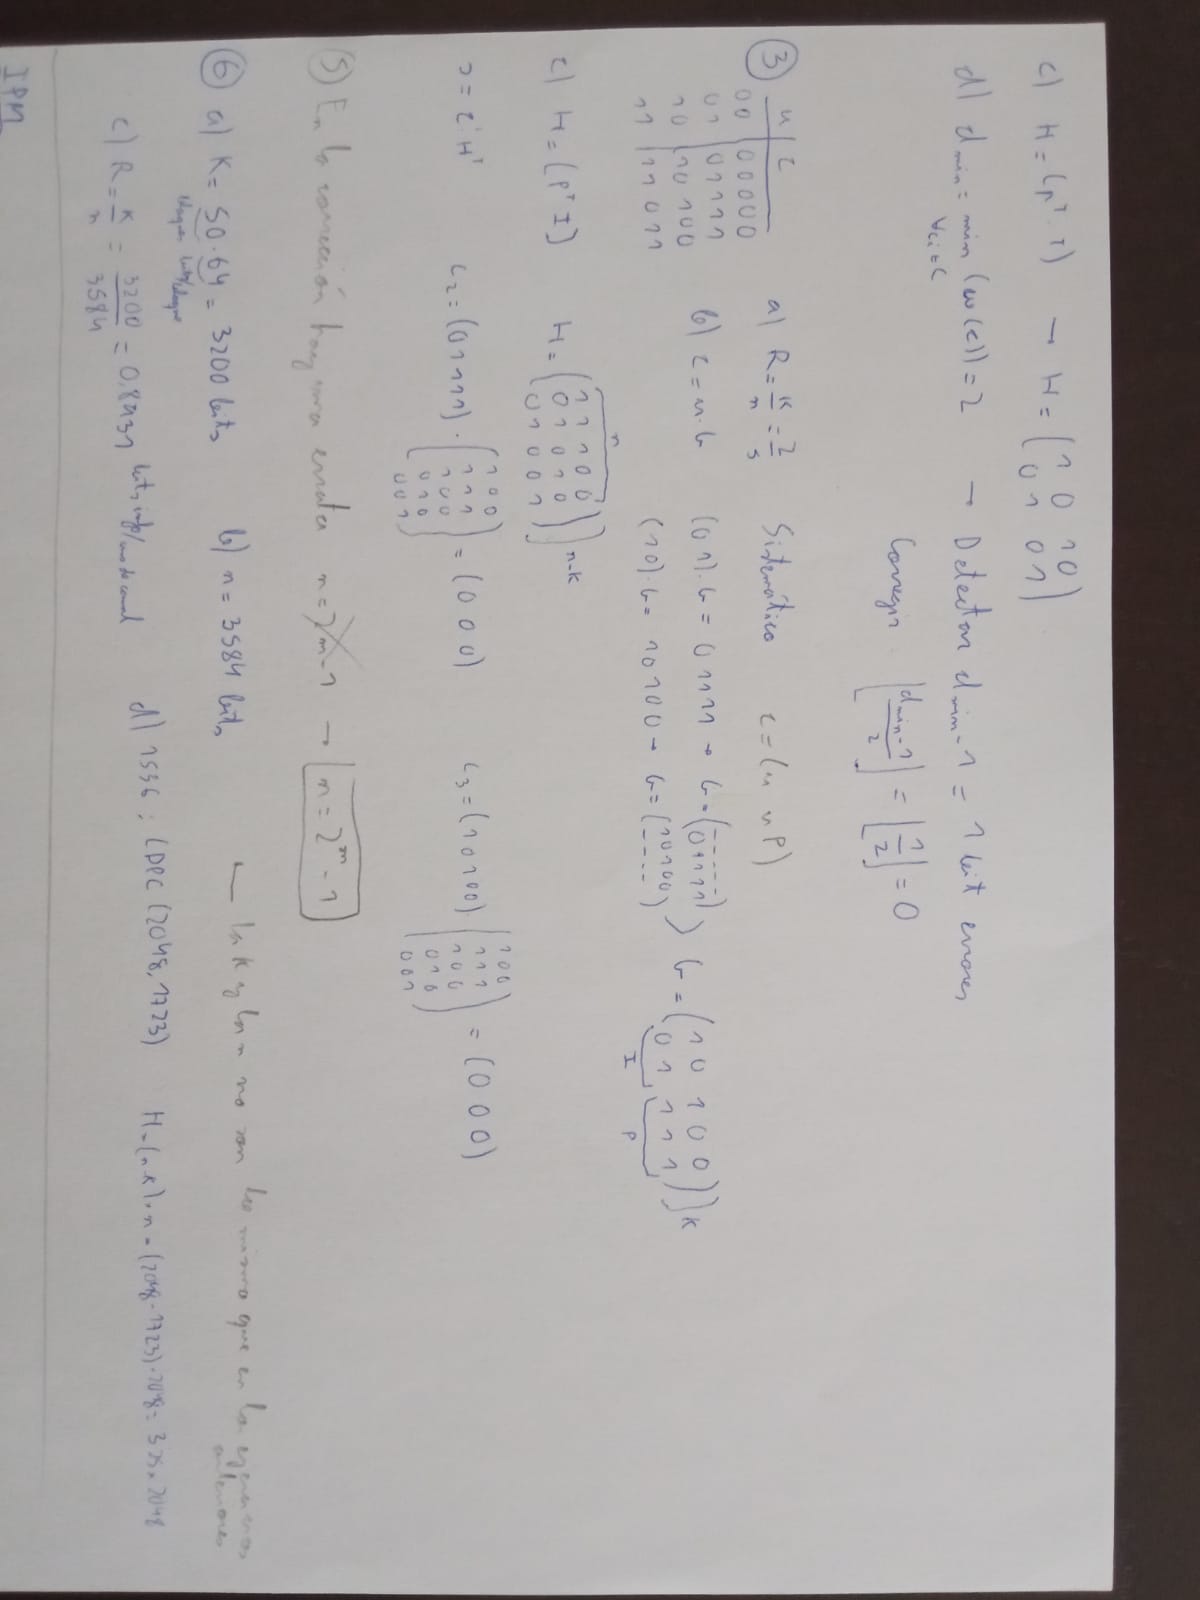 c) H = (P^T I) → H = (1 0 1 0
0 1 0 1)
d) d min = min (w(c)) = 2 → Detectar d min - 1 = 1 bit errores
∀ci ∈ C
Corregir ⌊(d min - 1)/2⌋ = ⌊1/2⌋ = 0
③ u | c
00 | 00000
01 | 01111
10 | 10100
11 | 11011
a) R = K/n = 2/5 Sistemático c = (u uP)
b) c = u·G (01)·G = 01111 → G = (-----
01111)
(10)·G = 10100 → G = (10100
----)
G = (1 0 1 0 0
0 1 1 1 1) ]K
I P
c) H = (P^T I) H = (1 1 1 0 0
0 1 0 1 0
0 1 0 0 1) ] n-K
n
s = c·H^T c2 = (01111) · (100
111
100
010
001) = (0 0 0)
c3 = (10100) (100
111
100
010
001) = (0 0 0)
5) En la corrección hay una errata n = 2m-1 → n = 2^m - 1
⑥ a) K = 50·64 = 3200 bits b) n = 3584 bits ← la K y la n no son lo mismo que en los ejercicios anteriores
bloques bits/bloque
c) R = K/n = 3200/3584 = 0,8931 bits info/uso de canal
d) 1536; LDPC (2048, 1723) H = (n-K)×n = (2048-1723)·2048 = 325×2048
IPM